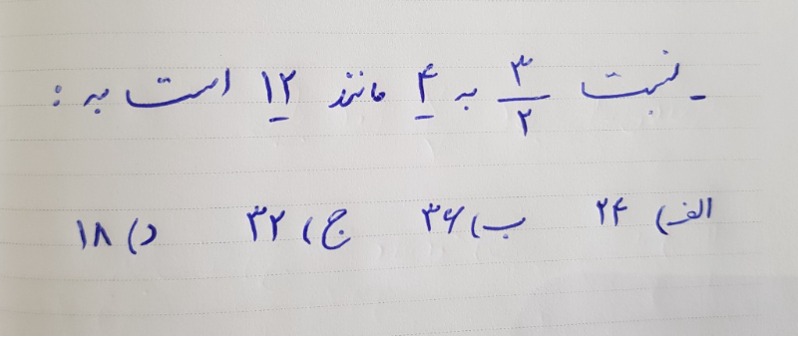 ـ نسبت ۳/۲ به ۴ مانند ۱۲ است به :
الف) ۲۴ ب) ۳۶ ج) ۳۲ د) ۱۸